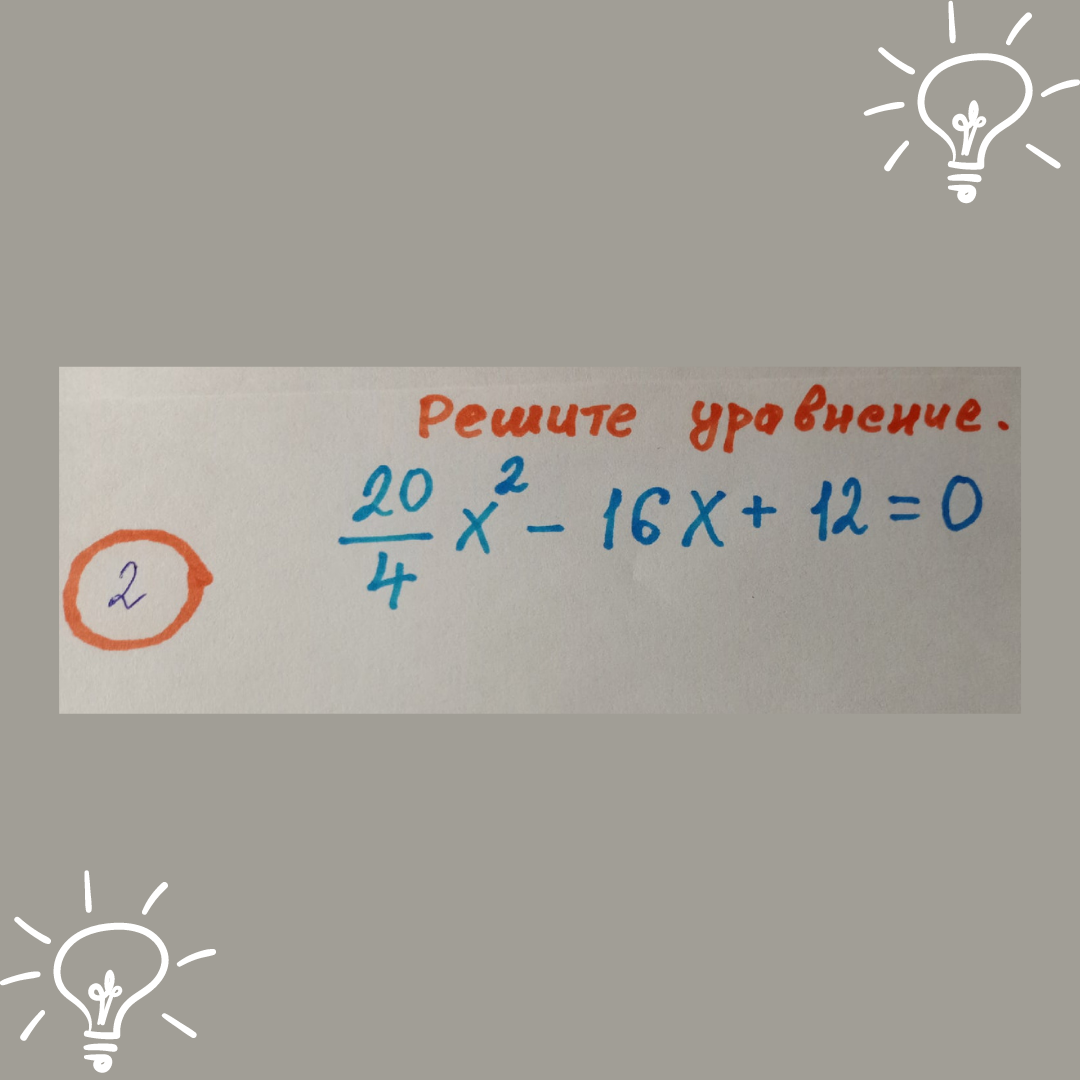 Решите уравнение.
20/4 x² - 16x + 12 = 0
2